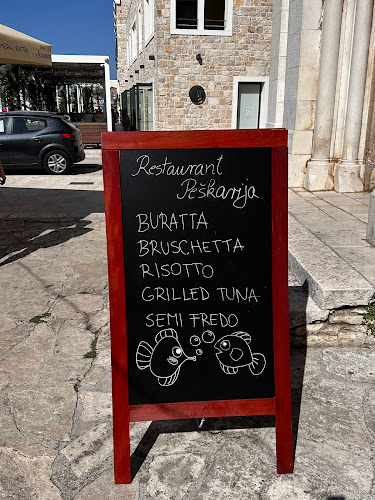 Restaurant
Peškarija
BURATTA
BRUSCHETTA
RISOTTO
GRILLED TUNA
SEMI FREDO